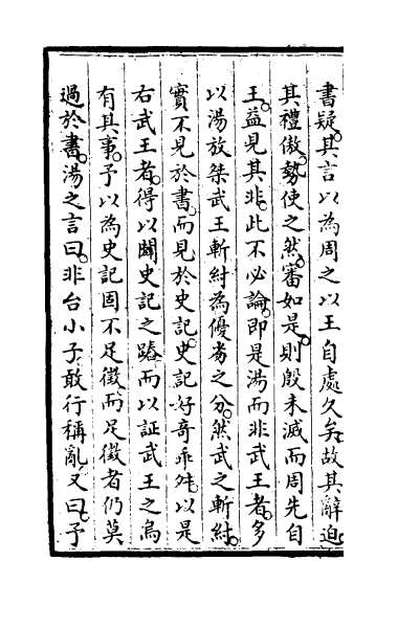 書疑。其言以為周之以王自處久矣。故其辭迫。
其禮傲。勢使之然。審如是。則殷未滅而周先自
王。益見其非。此不必論。即是湯而非武王者。多
以湯放桀武王斬紂為優劣之分。然武之斬紂。
實不見於書。而見於史記。史記好奇乖舛。以是
右武王者。得以闢史記之躊而以証武王之烏
有其事。予以為史記固不足徵。而足徵者仍莫
過於書。湯之言曰。非台小子。敢行稱亂。又曰。予